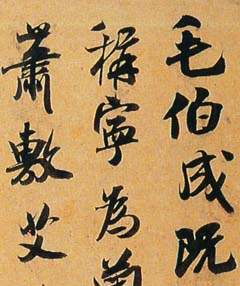 毛伯成既
稱寧為
蕭敷艾